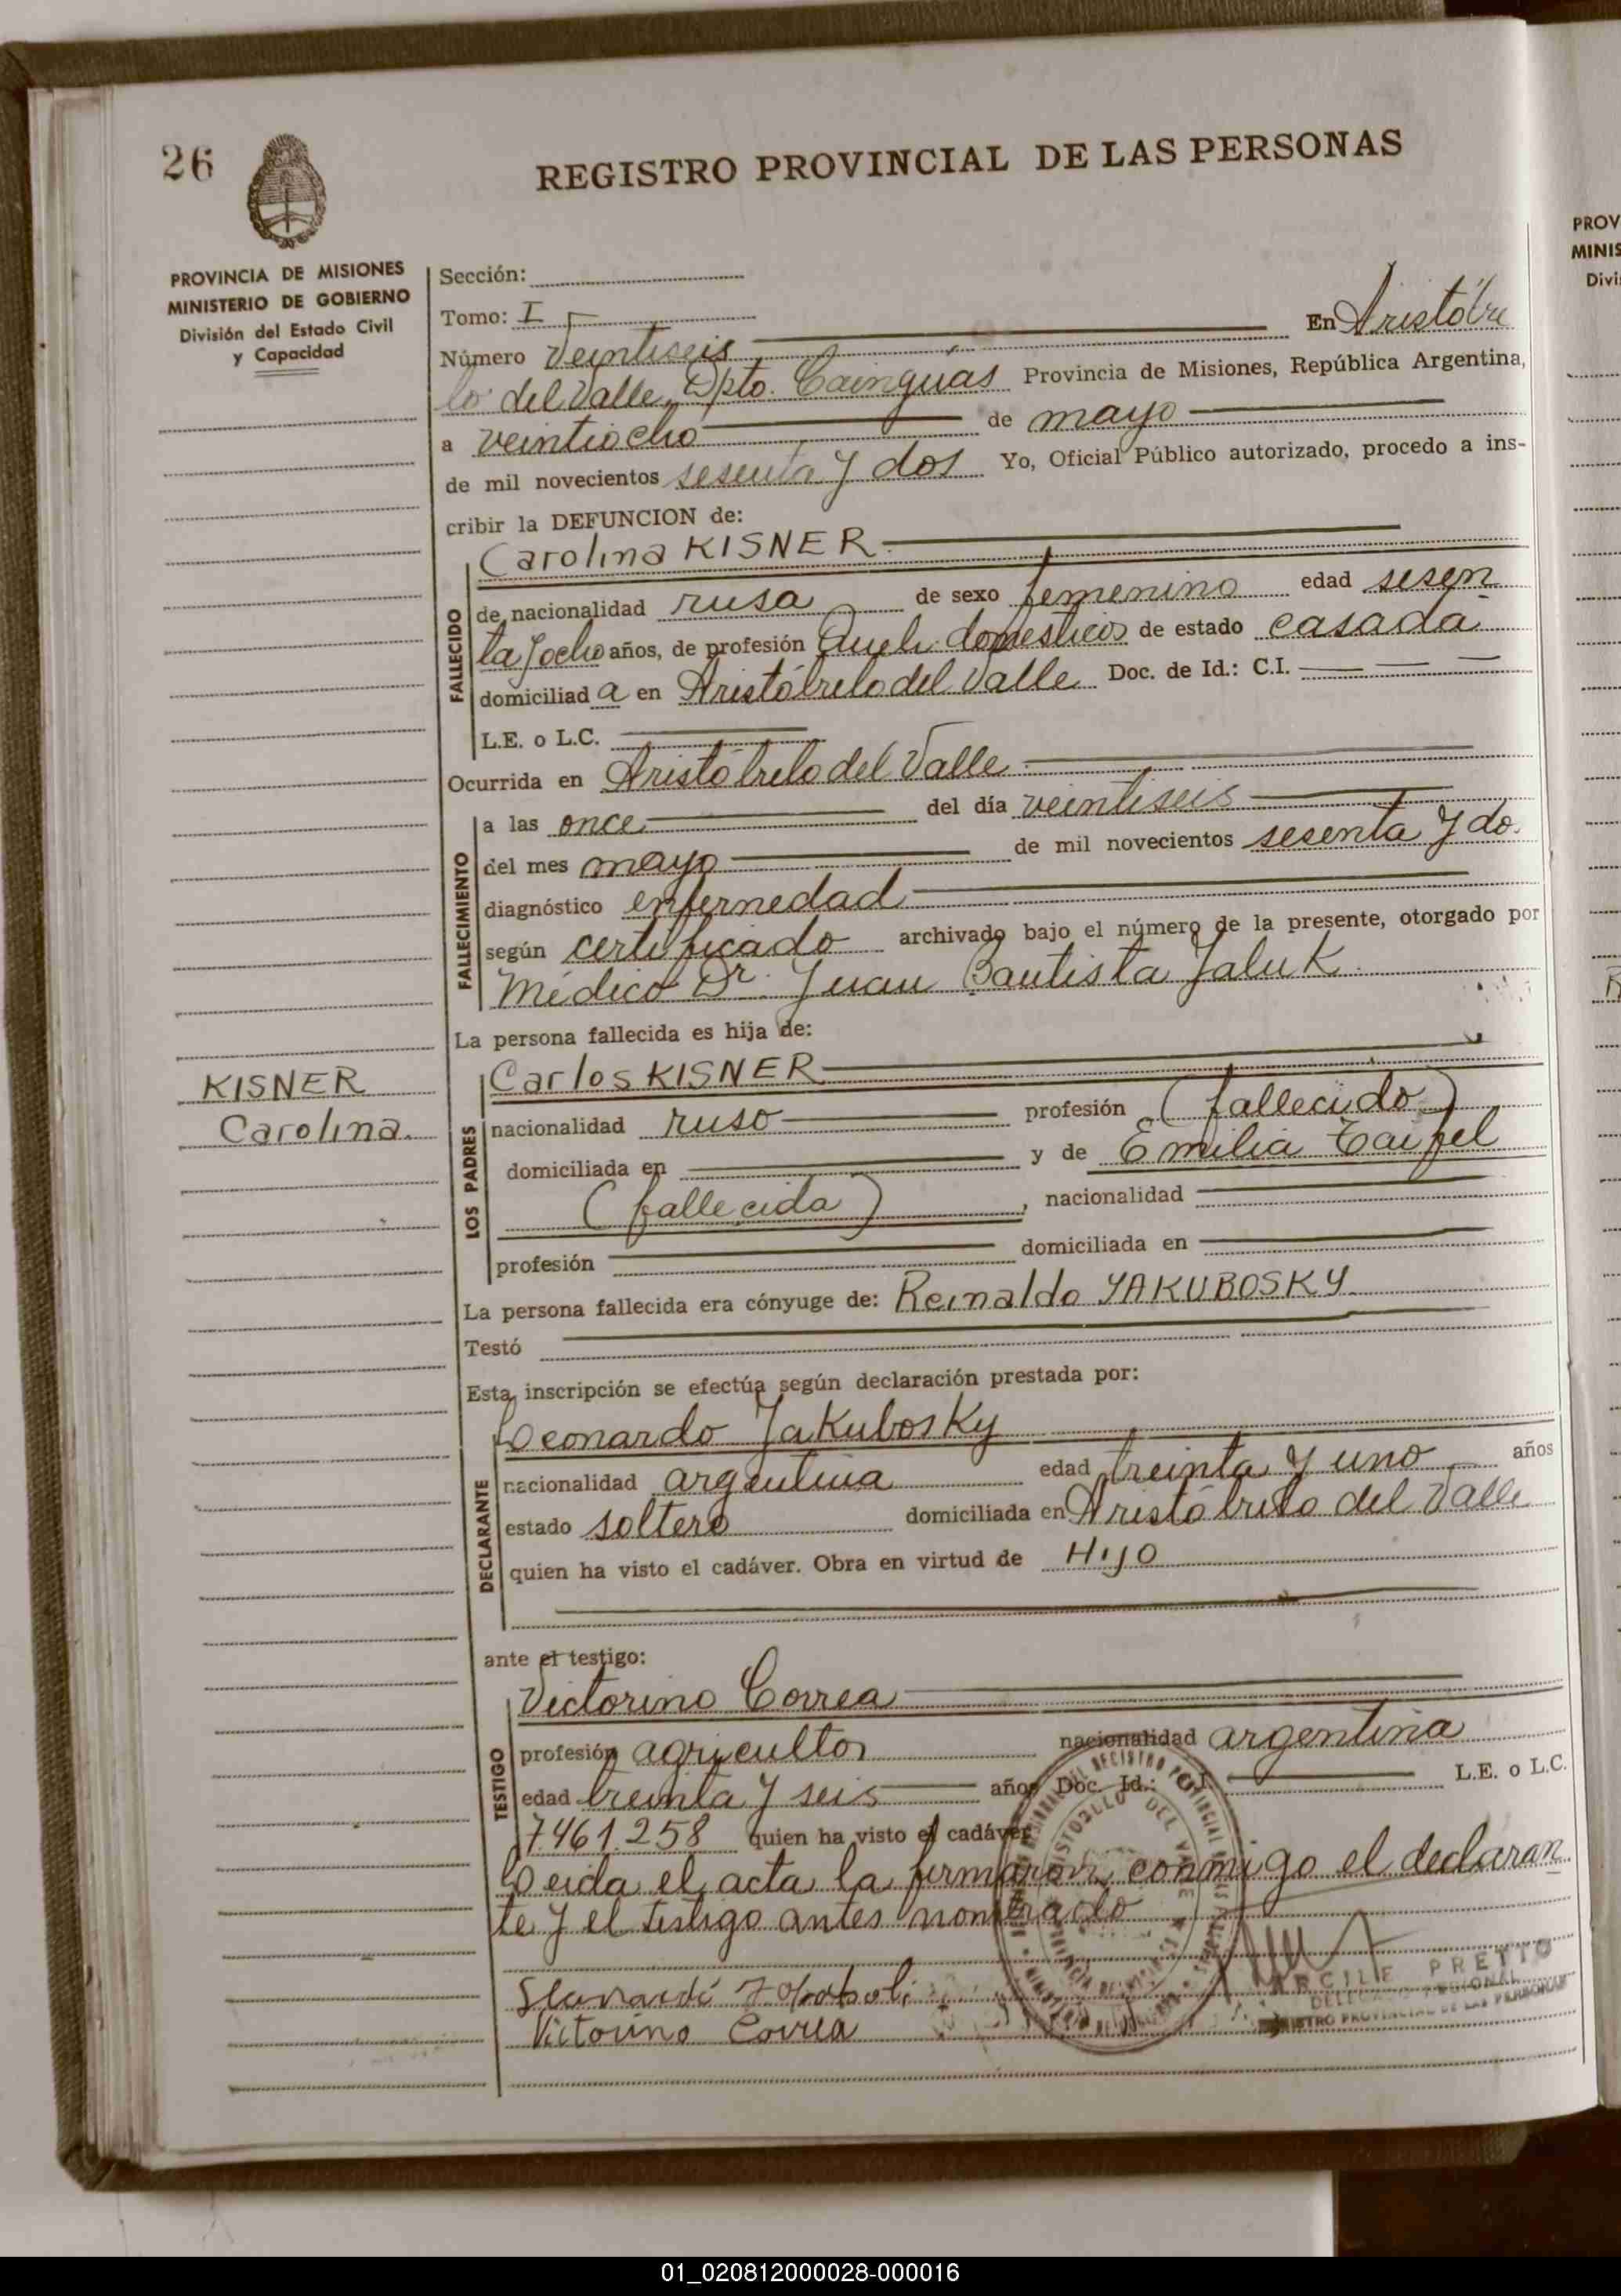 26
REGISTRO PROVINCIAL DE LAS PERSONAS
PROVINCIA DE MISIONES
MINISTERIO DE GOBIERNO
División del Estado Civil
y Capacidad
Sección:
Tomo: I
Número Veintiseis En Aristóbu
lo del Valle, Dpto. Cainguás Provincia de Misiones, República Argentina,
a veintiocho de mayo
de mil novecientos sesenta y dos Yo, Oficial Público autorizado, procedo a ins-
cribir la DEFUNCION de:
Carolina KISNER
FALLECIDO
de nacionalidad rusa de sexo femenino edad sesen
ta y ocho años, de profesión Queh. domésticos de estado casada
domiciliad a en Aristóbulo del Valle Doc. de Id.: C.I.
L.E. o L.C.
Ocurrida en Aristóbulo del Valle
FALLECIMIENTO
a las once del día veintiseis
del mes mayo de mil novecientos sesenta y do
diagnóstico enfermedad
según certificado archivado bajo el número de la presente, otorgado por
Médico Dr. Juan Bautista Jaluk
La persona fallecida es hija de:
KISNER
Carolina.
LOS PADRES
Carlos KISNER
nacionalidad ruso profesión (fallecido)
domiciliada en y de Emilia Taifel
(fallecida), nacionalidad
profesión domiciliada en
La persona fallecida era cónyuge de: Reinaldo YAKUBOSKY
Testó
Esta inscripción se efectúa según declaración prestada por:
DECLARANTE
Leonardo Jakubosky
nacionalidad argentina edad treinta y uno años
estado soltero domiciliada en Aristóbulo del Valle
quien ha visto el cadáver. Obra en virtud de HIJO
ante el testigo:
TESTIGO
Victorino Correa
profesión agricultor nacionalidad argentina
edad treinta y seis años Doc. Id.: C.I. L.E. o L.C.
7461.258 quien ha visto el cadáver
Leida el acta la firmaron conmigo el declaran
te y el testigo antes nombrado
Victorino Correa
ARCILE PRETTO
DELEGADO REGIONAL
REGISTRO PROVINCIAL DE LAS PERSONAS
PROV
MINIS
Divi
01_020812000028-000016